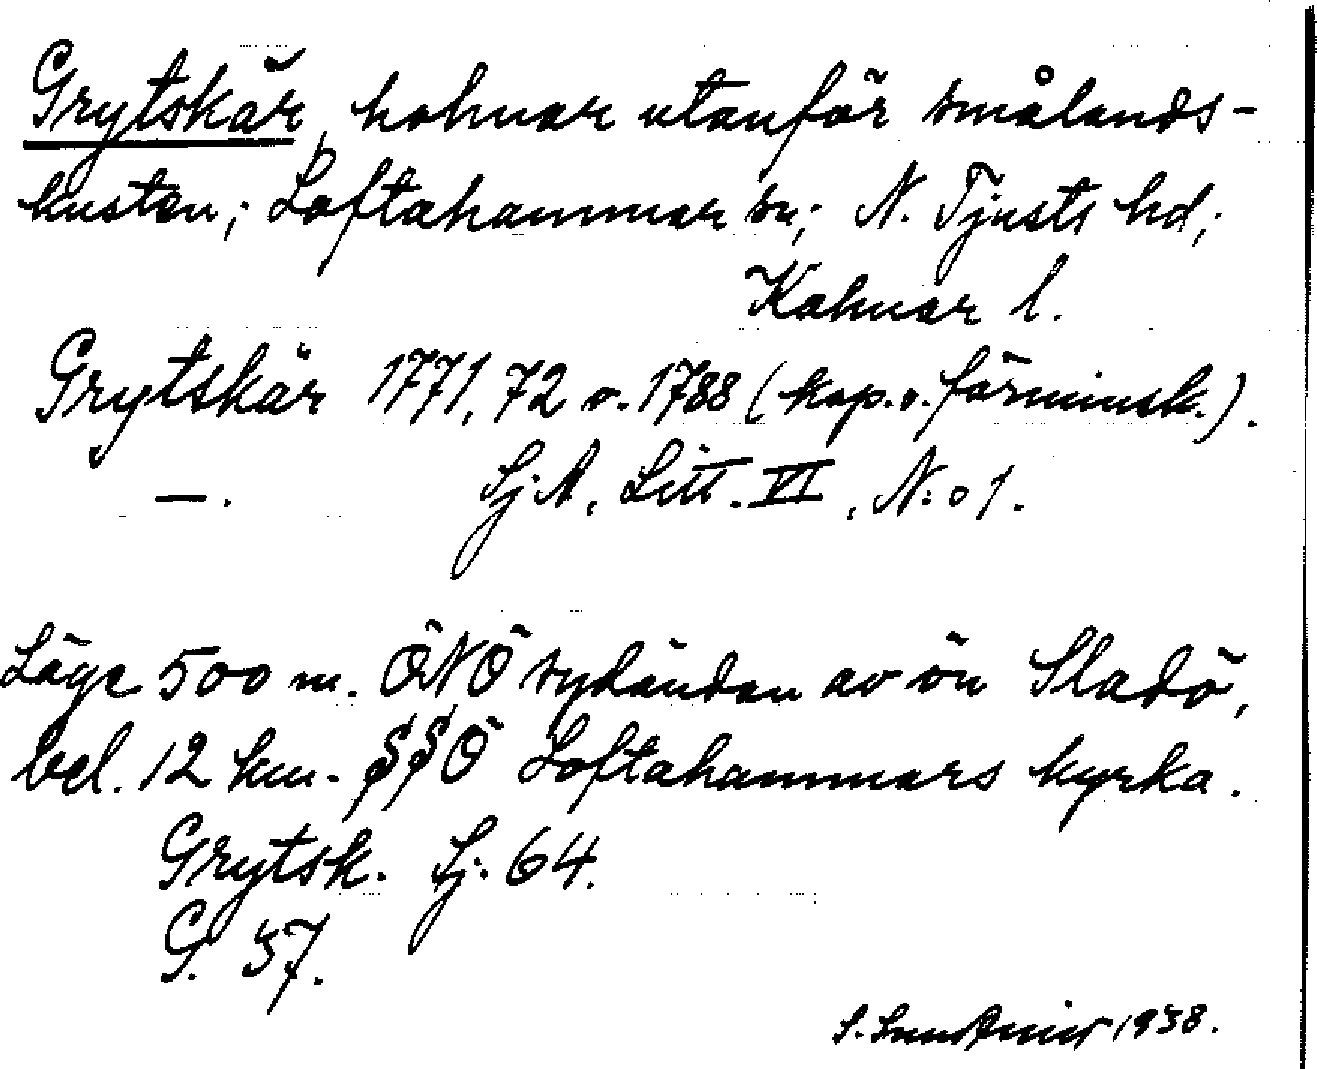 Grytskär, holmar utanför smålands-
kusten; Loftahammar sn; N. Tjusts hd;
Kalmar l.
Grytskär 1771, 72 o. 1788 (kop. o. förminsk.).
—. Sj.A, Litt. VI, N:o 1.
Läge 500 m. ÖNÖ sydändan av ön Sladö,
bel. 12 km. SSÖ Loftahammars kyrka.
Grytsk. Sj. 64.
G. 37.
S. 1938.